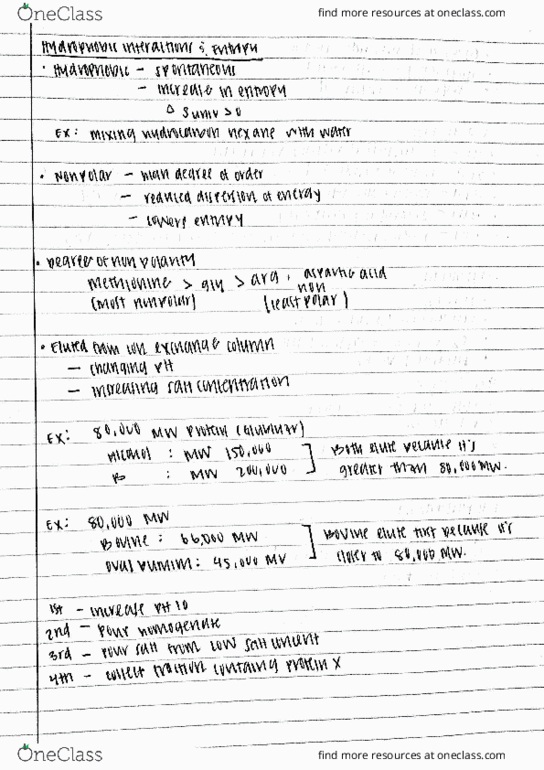 OneClass find more resources at oneclass.com
Hydrophobic interactions & Entropy
• Hydrophobic - spontaneous
- increase in entropy
Δ Suniv > 0
EX: mixing hydrocarbon hexane with water
• Nonpolar - high degree of order
- reduced dispersion of energy
- lowers entropy
• Degree of non polarity
methionine > gly > arg, aspartic acid
(most nonpolar) (least non polar)
• Eluted from ion exchange column
- changing pH
- increasing salt concentration
EX: 80,000 MW protein (globular)
Alcohol : MW 150,000
B : MW 200,000
Both elute because it's
greater than 80,000 MW.
EX: 80,000 MW
Bovine : 66,000 MW
Oval bumim: 45,000 MW
Bovine elute first because it's
closer to 80,000 MW.
1st - increase pH 10
2nd - Pour homogenate
3rd - Pour salt from low salt
4th - collect fraction containing protein X
OneClass find more resources at oneclass.com